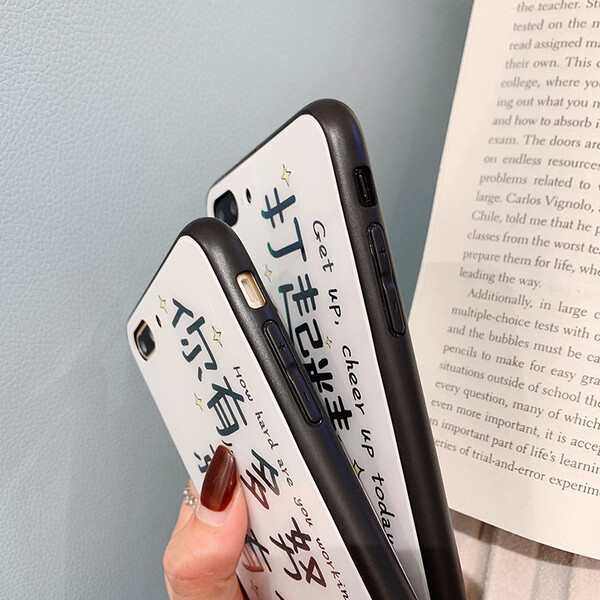 打起精
Get up, cheer up today
你有多努
有
How hard are you workin
the teacher. St
tested on the m
read assigned ma
their own. This c
college, where yo
ing out what you n
and how to absorb i
exam. The doors are
on endless resources
problems related to
large. Carlos Vignolo,
Chile, told me that he p
classes from the worst te
prepare them for life, whe
leading the way.
Additionally, in large c
multiple-choice tests with o
and the bubbles must be ca
pencils to make for easy gra
situations outside of school the
every question, many of which
even more important, it is accep
important part of life's learnin
eries of trial-and-error experim